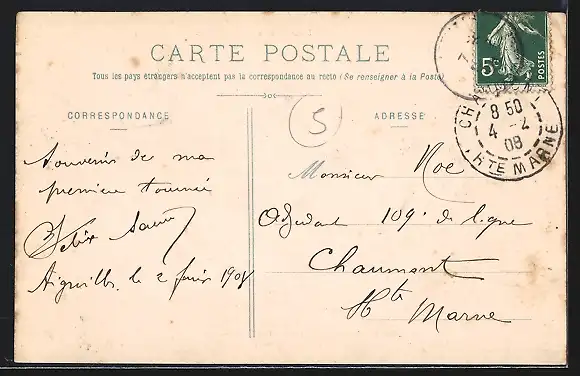 CARTE POSTALE
Tous les pays étrangers n'acceptent pas la correspondance au recto (Se renseigner à la Poste)
CORRESPONDANCE
ADRESSE
5
5c
POSTES
CHAUMONT
8 50
4 - 2
08
HTE MARNE
Souvenir de ma
première tournée
Felix
Aiguilles, le 2 1908
Monsieur Noe
Adjudant 109e de ligne
Chaumont
Hte
Marne